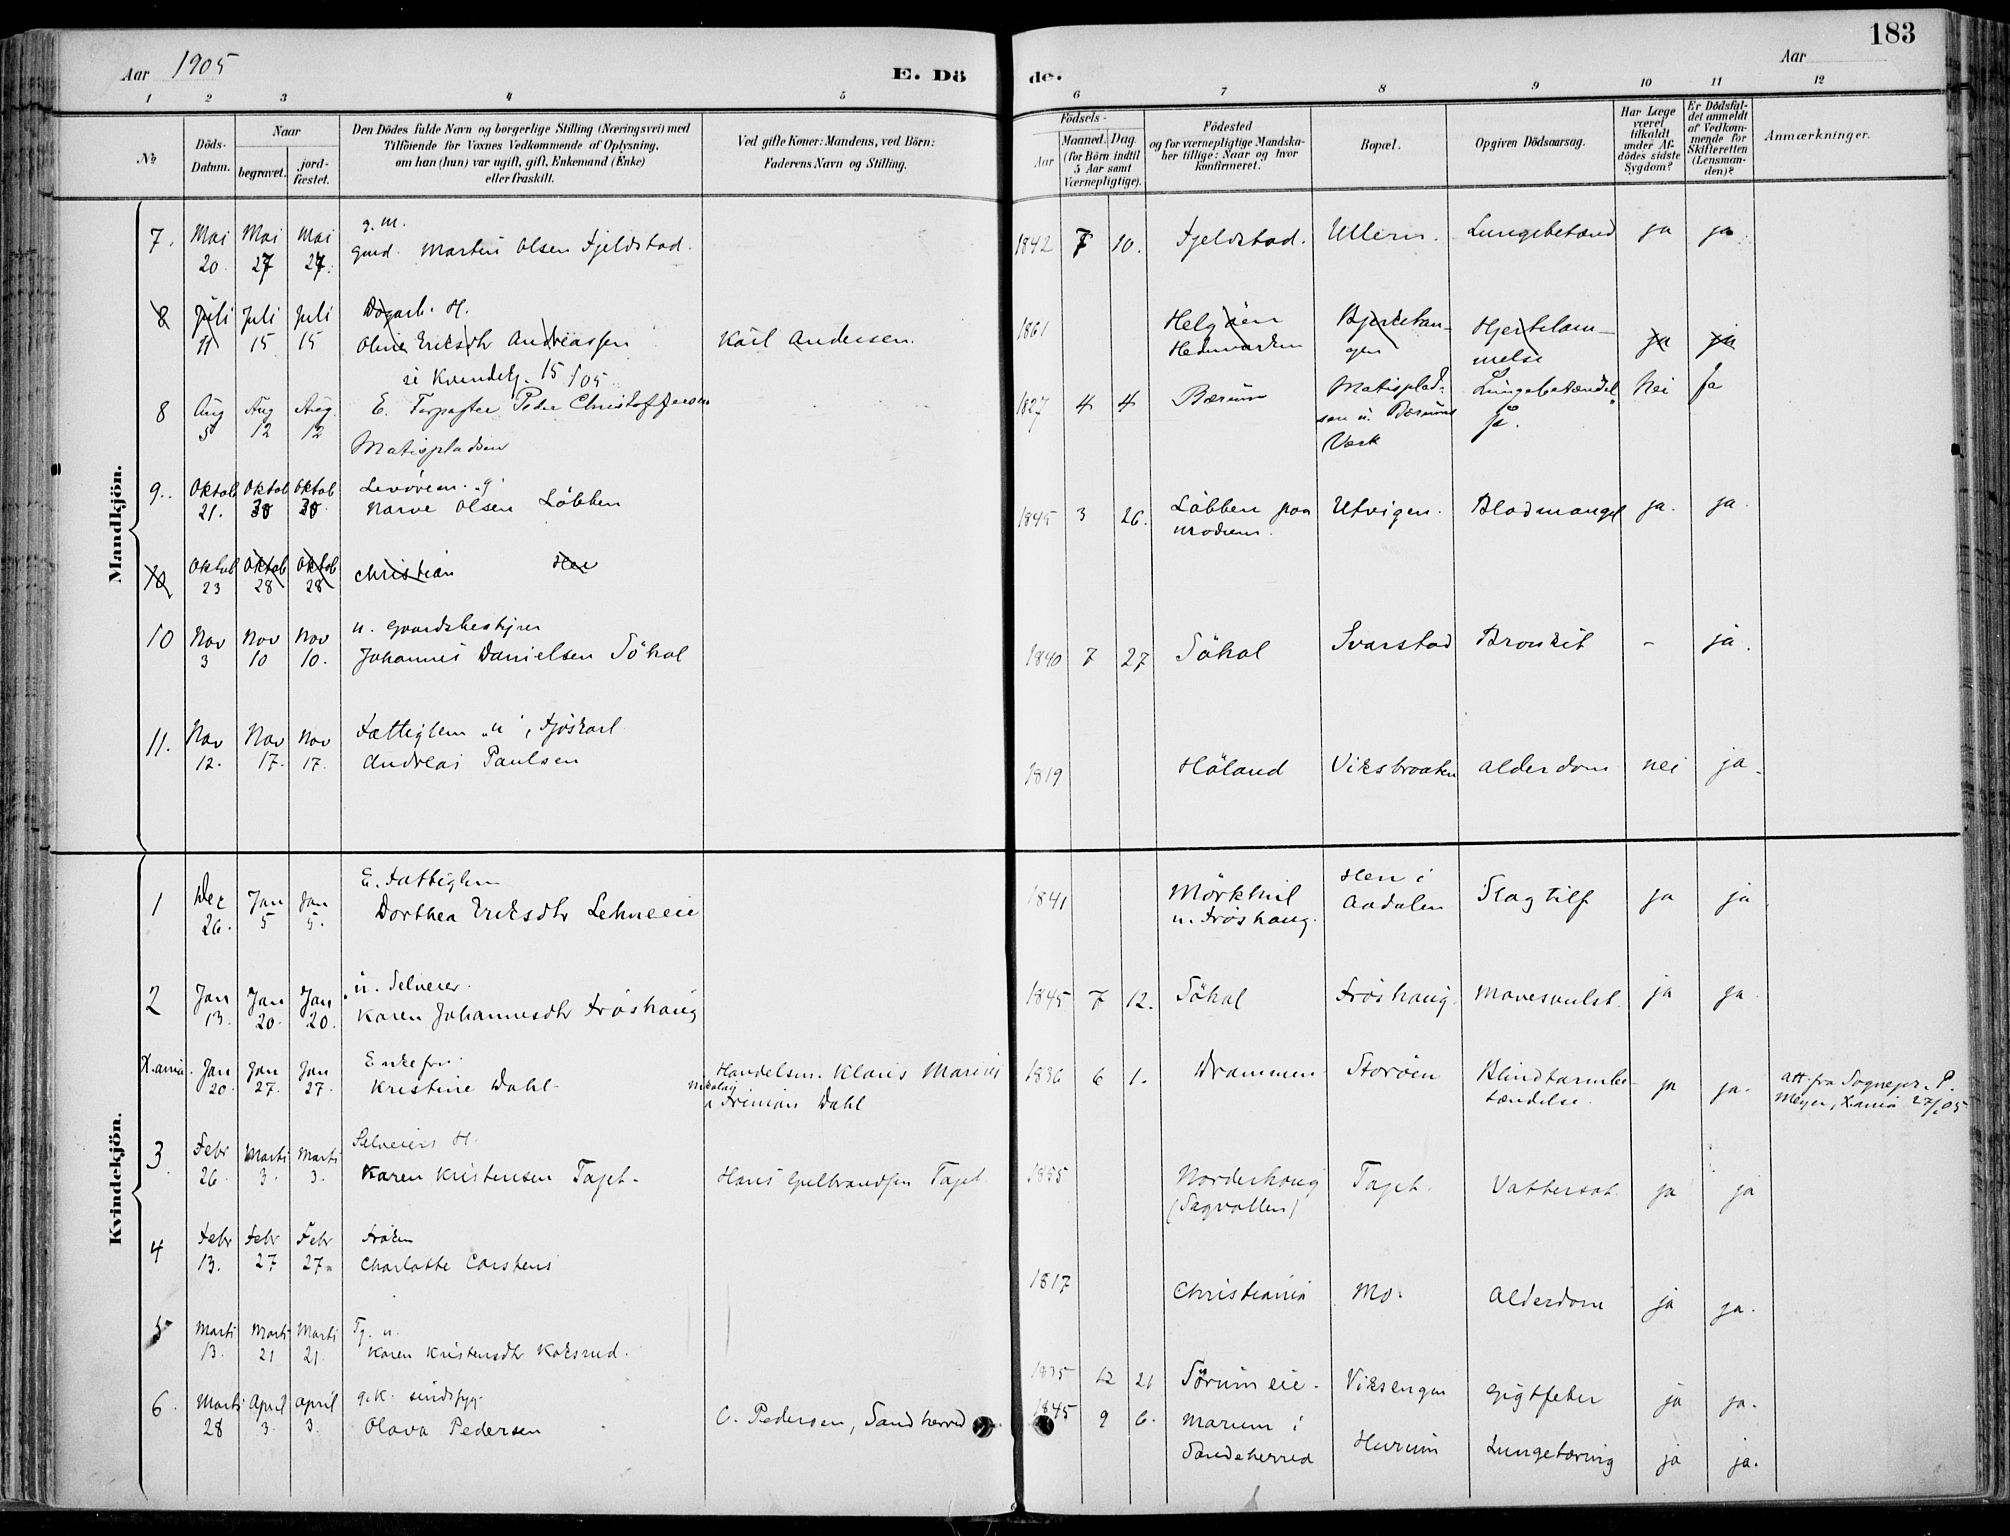 183
Aar 1905
E. Dö
de.
Aar
1 2 3 4 5 6 7 8 9 10 11 12
No
Döds-
Datum.
Naar
begravet.
jord-
fæstet.
Den Dödes fulde Navn og borgerlige Stilling (Næringsvei) med
Tilföiende for Voxnes Vedkommende af Oplysning,
om han (hun) var ugift, gift, Enkemand (Enke)
eller fraskilt.
Ved gifte Koner: Mandens, ved Börn:
Faderens Navn og Stilling.
Födsels-
Aar
Maaned. Dag.
(for Börn indtil
5 Aar samt
Værnepligtige).
Födested
og for værnepligtige Mandska-
ber tillige: Naar og hvor
konfirmeret.
Bopæl.
Opgiven Dödsaarsag.
Har Læge
været
tilkaldt
under Af-
dödes sidste
Sygdom?
Er Dödsfal-
det anmeldt
af Vedkom-
mende for
Skifteretten
(Lensman-
den)?
Anmærkninger.
Mandkjön.
7. Mai 20. Mai 27 Mai 27. g. m.
Gmd. Martin Olsen Fjeldstad. 1842 7 10. Fjeldstad. Ullern. Lungebetænd ja ja
8 Juli 11 Juli 15 Juli 15 Dagarb. H.
Oline Eriksdtr Andreassen Karl Andersen. 1861 Helgöen
Hedemarken Bjerketan-
gen Hjertelam-
melse ja ja
se Kvindekj. 15/05
8 Aug 5 Aug 12 Aug. 12 E. Forpagter Peder Christoffersen
Matispladsen 1827 4 4 Bærum Matisplad-
sen u. Bærums
Værk Lungebetændel Nei Ja
9. Oktob 21. Oktob 30 Oktob 30. "g"
Narve Olsen Löbben 1845 3 26. Löbben paa
Modum. Utvigen. Blodmangel ja. ja.
10 Oktob 23 Oktob 28 Oktob 28 Christian Hen
10 Nov 3 Nov 10 Nov 10. u. Gaardsbestyrer
Johannes Danielsen Söhol 1840 7 27 Söhol Svarstad Bronkit - ja.
11. Nov 12. Nov 17. Nov 17. Fattiglem "u", Fjöskarl
Andreas Paulsen 1819 Höland Viksbraaten Alderdom nei ja.
Kvindekjön.
1 Dec 26. Jan 5 Jan 5. E. Fattiglem
Dorthea Eriksdtr Lehneeie 1841 Mörkhul
u. Fröshaug. Hen i
Aadalen Slagtilf ja ja
2 Jan 13. Jan 20. Jan 20. u. Selveier.
Karen Johannesdtr Fröshaug 1845 7 12. Söhol Fröshaug. Mavesvulst. ja ja.
X.ania. Jan 20. Jan 27. Jan 27. Enkefru
Kristine Dahl. Handelsm. Klaus Marius
Nikolai
Friman Dahl 1836 6 1. Drammen Storöen Blindtarmbe-
tændelse. ja ja. att. fra Sognepr. P.
Meyer, X.ania 27/1 05
3 Febr 26. Marts 3. Marts 3. Selveiers H.
Karen Kristensen Taget. Hans Gulbrandsen Taget 1855 Norderhoug
(Sagvollen) Taget. Vattersot. ja ja
4 Febr 13. Febr 27 Febr 27. Fröken
Charlotte Carstens 1817 Christiania Mo. Alderdom ja ja.
5 Marts 13. Marts 21 Marts 21. Tj. u.
Karen Kristensdtr Koksrud. 1835 12 21 Sörumeie. Viksengen Gigtfeber ja ja.
6. Marts 28 April 3. April 3. g.K. sindssyg
Olava Pedersen C. Pedersen, Sandherred 1845 9 6. Marum i
Sandeherred Hurum Lungetæring ja ja.